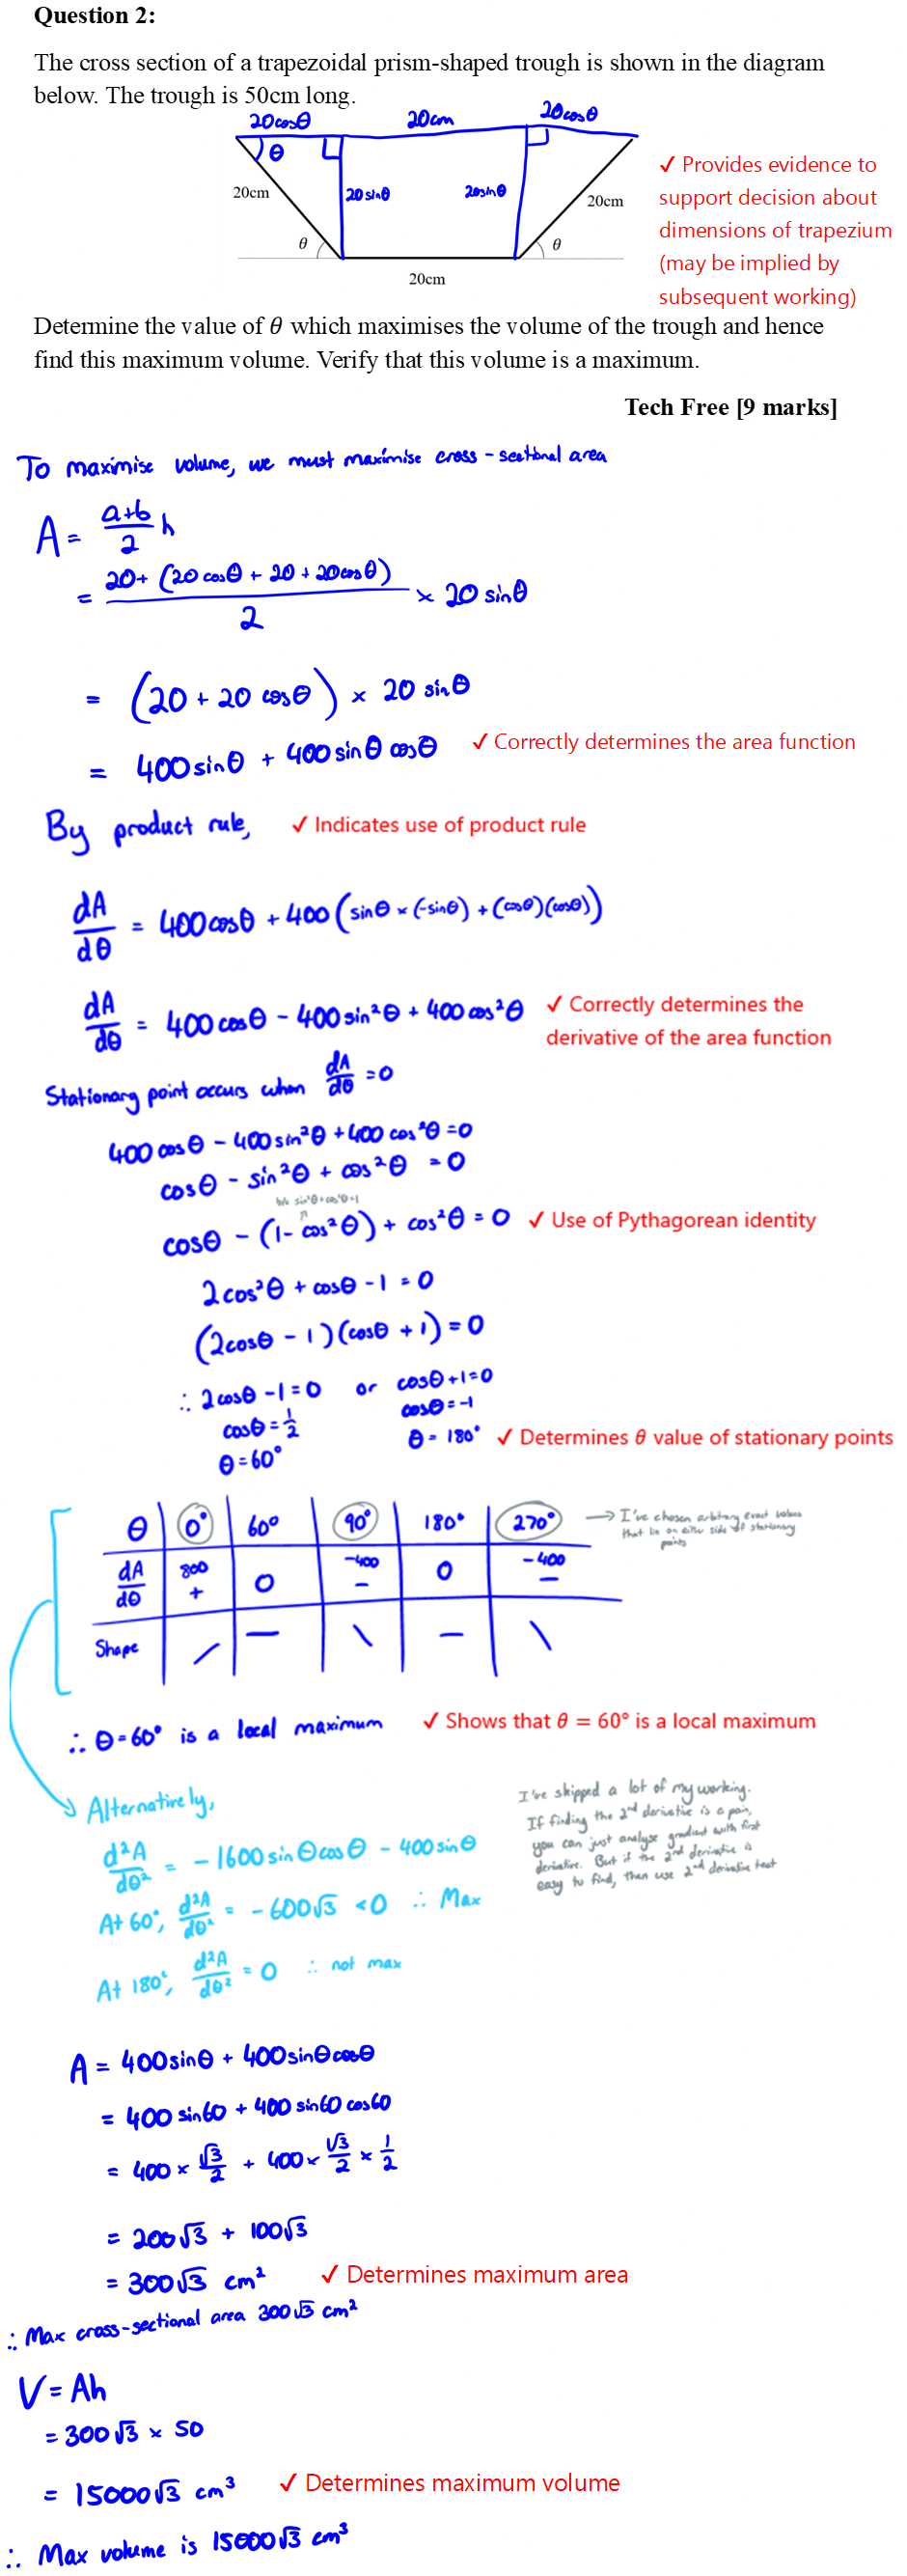 Question 2:
The cross section of a trapezoidal prism-shaped trough is shown in the diagram
below. The trough is 50cm long.
20cosθ 20cm 20cosθ
θ
20cm 20sinθ 20sinθ 20cm
θ θ
20cm
✓ Provides evidence to
support decision about
dimensions of trapezium
(may be implied by
subsequent working)
Determine the value of θ which maximises the volume of the trough and hence
find this maximum volume. Verify that this volume is a maximum.
Tech Free [9 marks]
To maximise volume, we must maximise cross-sectional area
A = (a+b)/2 h
= (20+ (20cosθ + 20 + 20cosθ))/2 × 20 sinθ
= (20 + 20 cosθ) × 20 sinθ
= 400sinθ + 400sinθ cosθ ✓ Correctly determines the area function
By product rule, ✓ Indicates use of product rule
dA/dθ = 400cosθ + 400(sinθ × (-sinθ) + (cosθ)(cosθ))
dA/dθ = 400cosθ - 400sin²θ + 400cos²θ ✓ Correctly determines the
derivative of the area function
Stationary point occurs when dA/dθ = 0
400cosθ - 400sin²θ + 400cos²θ = 0
cosθ - sin²θ + cos²θ = 0
b/c sin²θ+cos²θ=1
cosθ - (1- cos²θ) + cos²θ = 0 ✓ Use of Pythagorean identity
2cos²θ + cosθ - 1 = 0
(2cosθ - 1)(cosθ + 1) = 0
∴ 2cosθ - 1 = 0 or cosθ + 1 = 0
cosθ = 1/2 cosθ = -1
θ = 60° θ = 180° ✓ Determines θ value of stationary points
θ 0° 60° 90° 180° 270° → I've chosen arbitrary exact values
that lie on either side of stationary
points
dA/dθ 800 + 0 -400 − 0 -400 −
Shape / — \ — \
∴ θ = 60° is a local maximum ✓ Shows that θ = 60° is a local maximum
Alternatively,
d²A/dθ² = -1600sinθcosθ - 400sinθ
At 60°, d²A/dθ² = -600√3 < 0 ∴ Max
At 180°, d²A/dθ² = 0 ∴ not max
I've skipped a lot of my working.
If finding the 2nd derivative is a pain,
you can just analyse gradient with first
derivative. But if the 2nd derivative is
easy to find, then use 2nd derivative test
A = 400sinθ + 400sinθcosθ
= 400 sin60 + 400 sin60 cos60
= 400 × √3/2 + 400 × √3/2 × 1/2
= 200√3 + 100√3
= 300√3 cm² ✓ Determines maximum area
∴ Max cross-sectional area 300√3 cm²
V = Ah
= 300√3 × 50
= 15000√3 cm³ ✓ Determines maximum volume
∴ Max volume is 15000√3 cm³